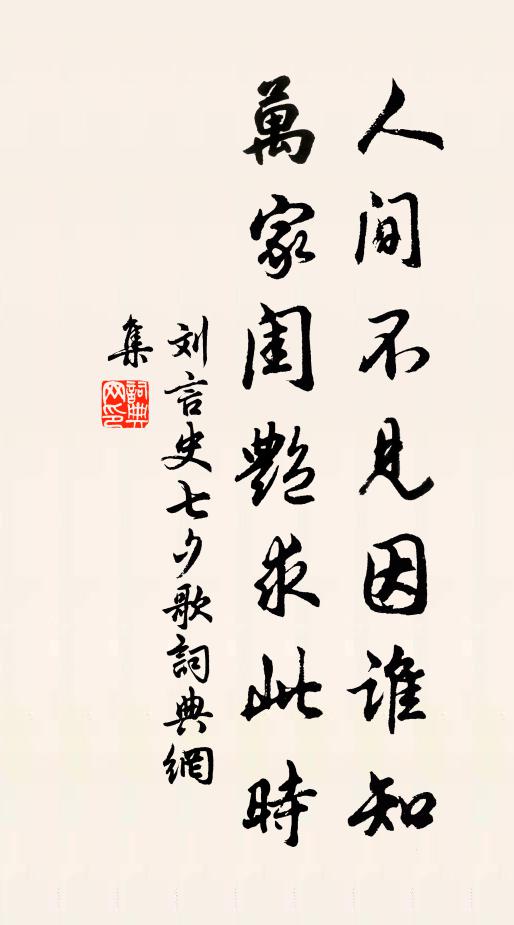 人间不见因谁知
萬家闺艷求此時
刘言史七夕歌詞典網
集
詞典网印